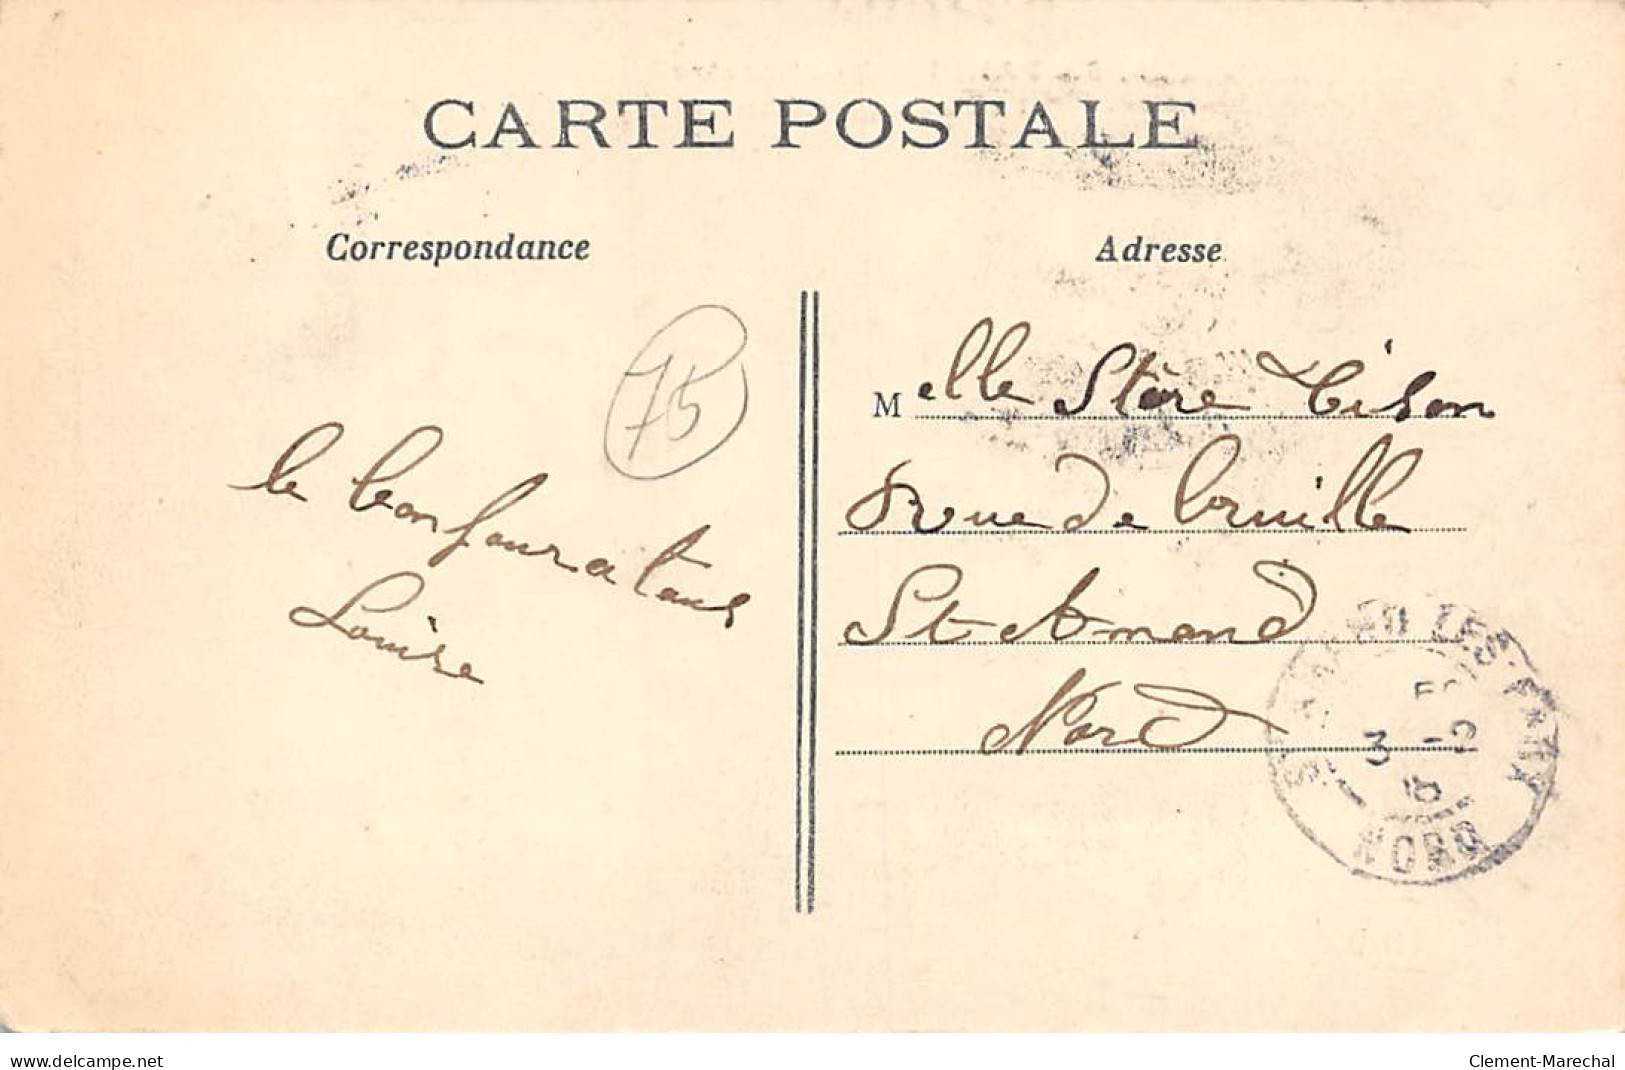 CARTE POSTALE
Correspondance
Adresse
75
le bonjour a tous
Louise
Melle Tison
rue de
St Amand
Nord
3 -2
NORD
www.delcampe.net
Clement-Marechal